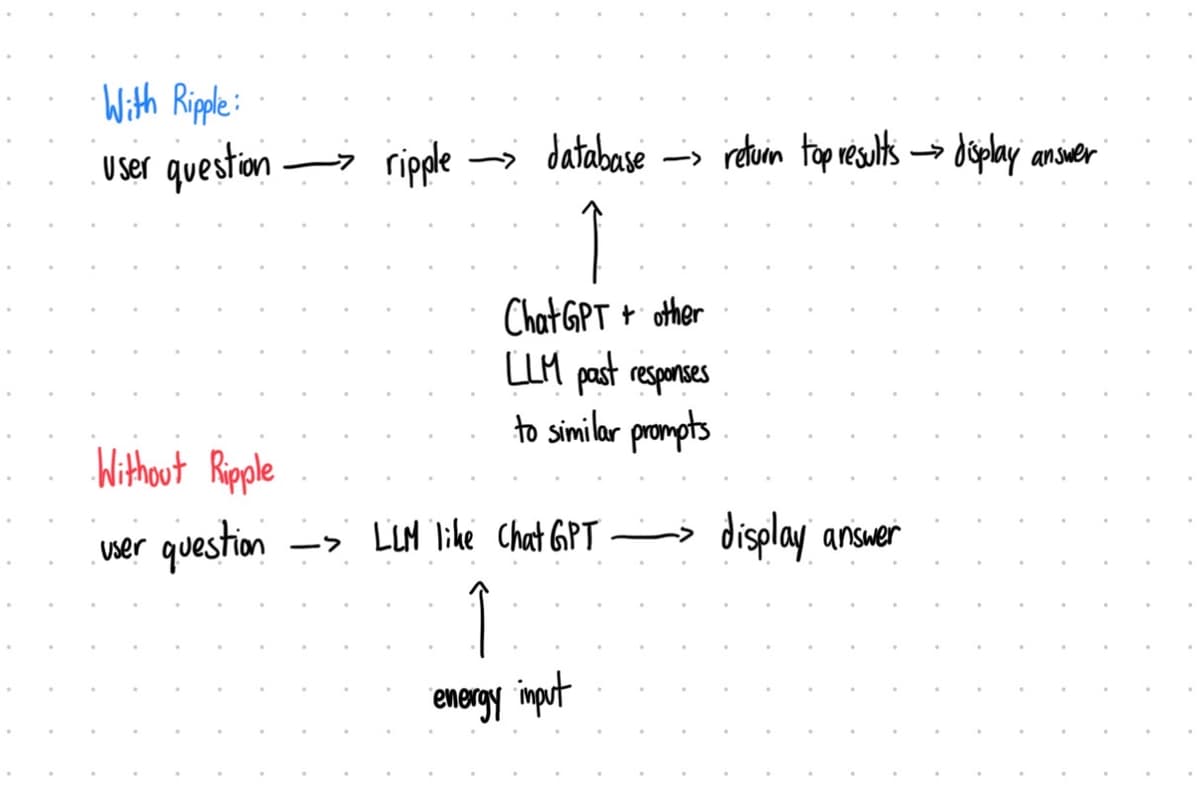 With Ripple:
user question → ripple → database → return top results → display answer
↑
ChatGPT + other
LLM past responses
to similar prompts
Without Ripple
user question → LLM like ChatGPT → display answer
↑
energy input